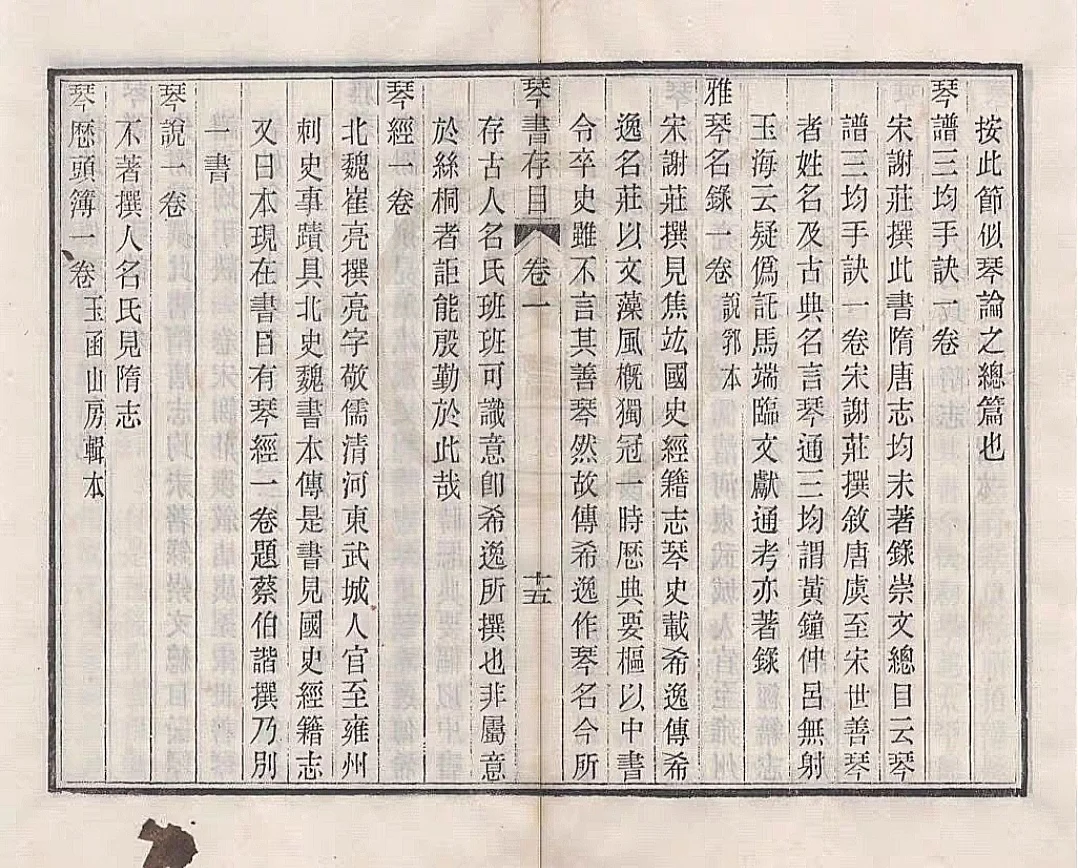 按此節似琴論之總篇也
琴譜三均手訣一卷
宋謝莊撰此書隋唐志均未著錄崇文總目云琴
譜三均手訣一卷宋謝莊撰敘唐虞至宋世善琴
者姓名及古典名言琴通三均謂黃鐘仲呂無射
玉海云疑僞託馬端臨文獻通考亦著錄
雅琴名錄一卷說郛本
宋謝莊撰見焦竑國史經籍志琴史載希逸傳希
逸名莊以文藻風概獨冠一時歷典要樞以中書
令卒史雖不言其善琴然故傳希逸作琴名今所
琴書存目 卷一 十五
存古人名氏班班可識意卽希逸所撰也非屬意
於絲桐者詎能殷勤於此哉
琴經一卷
北魏崔亮撰亮字敬儒清河東武城人官至雍州
刺史事蹟具北史魏書本傳是書見國史經籍志
又日本現在書目有琴經一卷題蔡伯諧撰乃別
一書
琴說一卷
不著撰人名氏見隋志
琴歷頭簿一卷玉函山房輯本